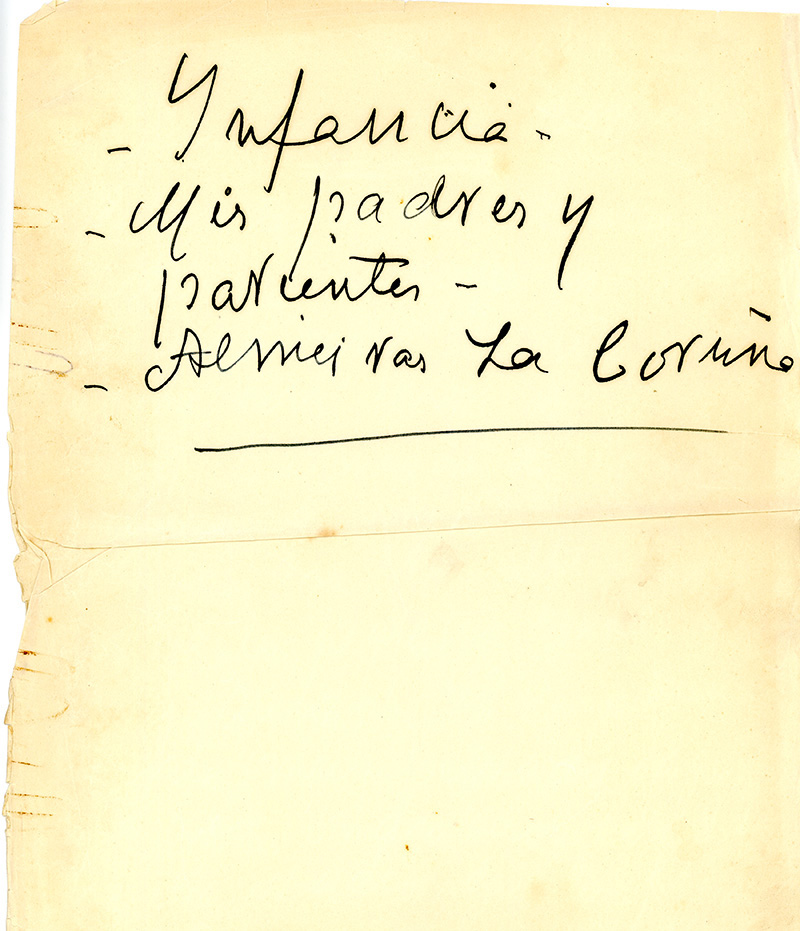 - Ynfancia -
- Mis padres y
parientes -
- Almeiras La Coruña